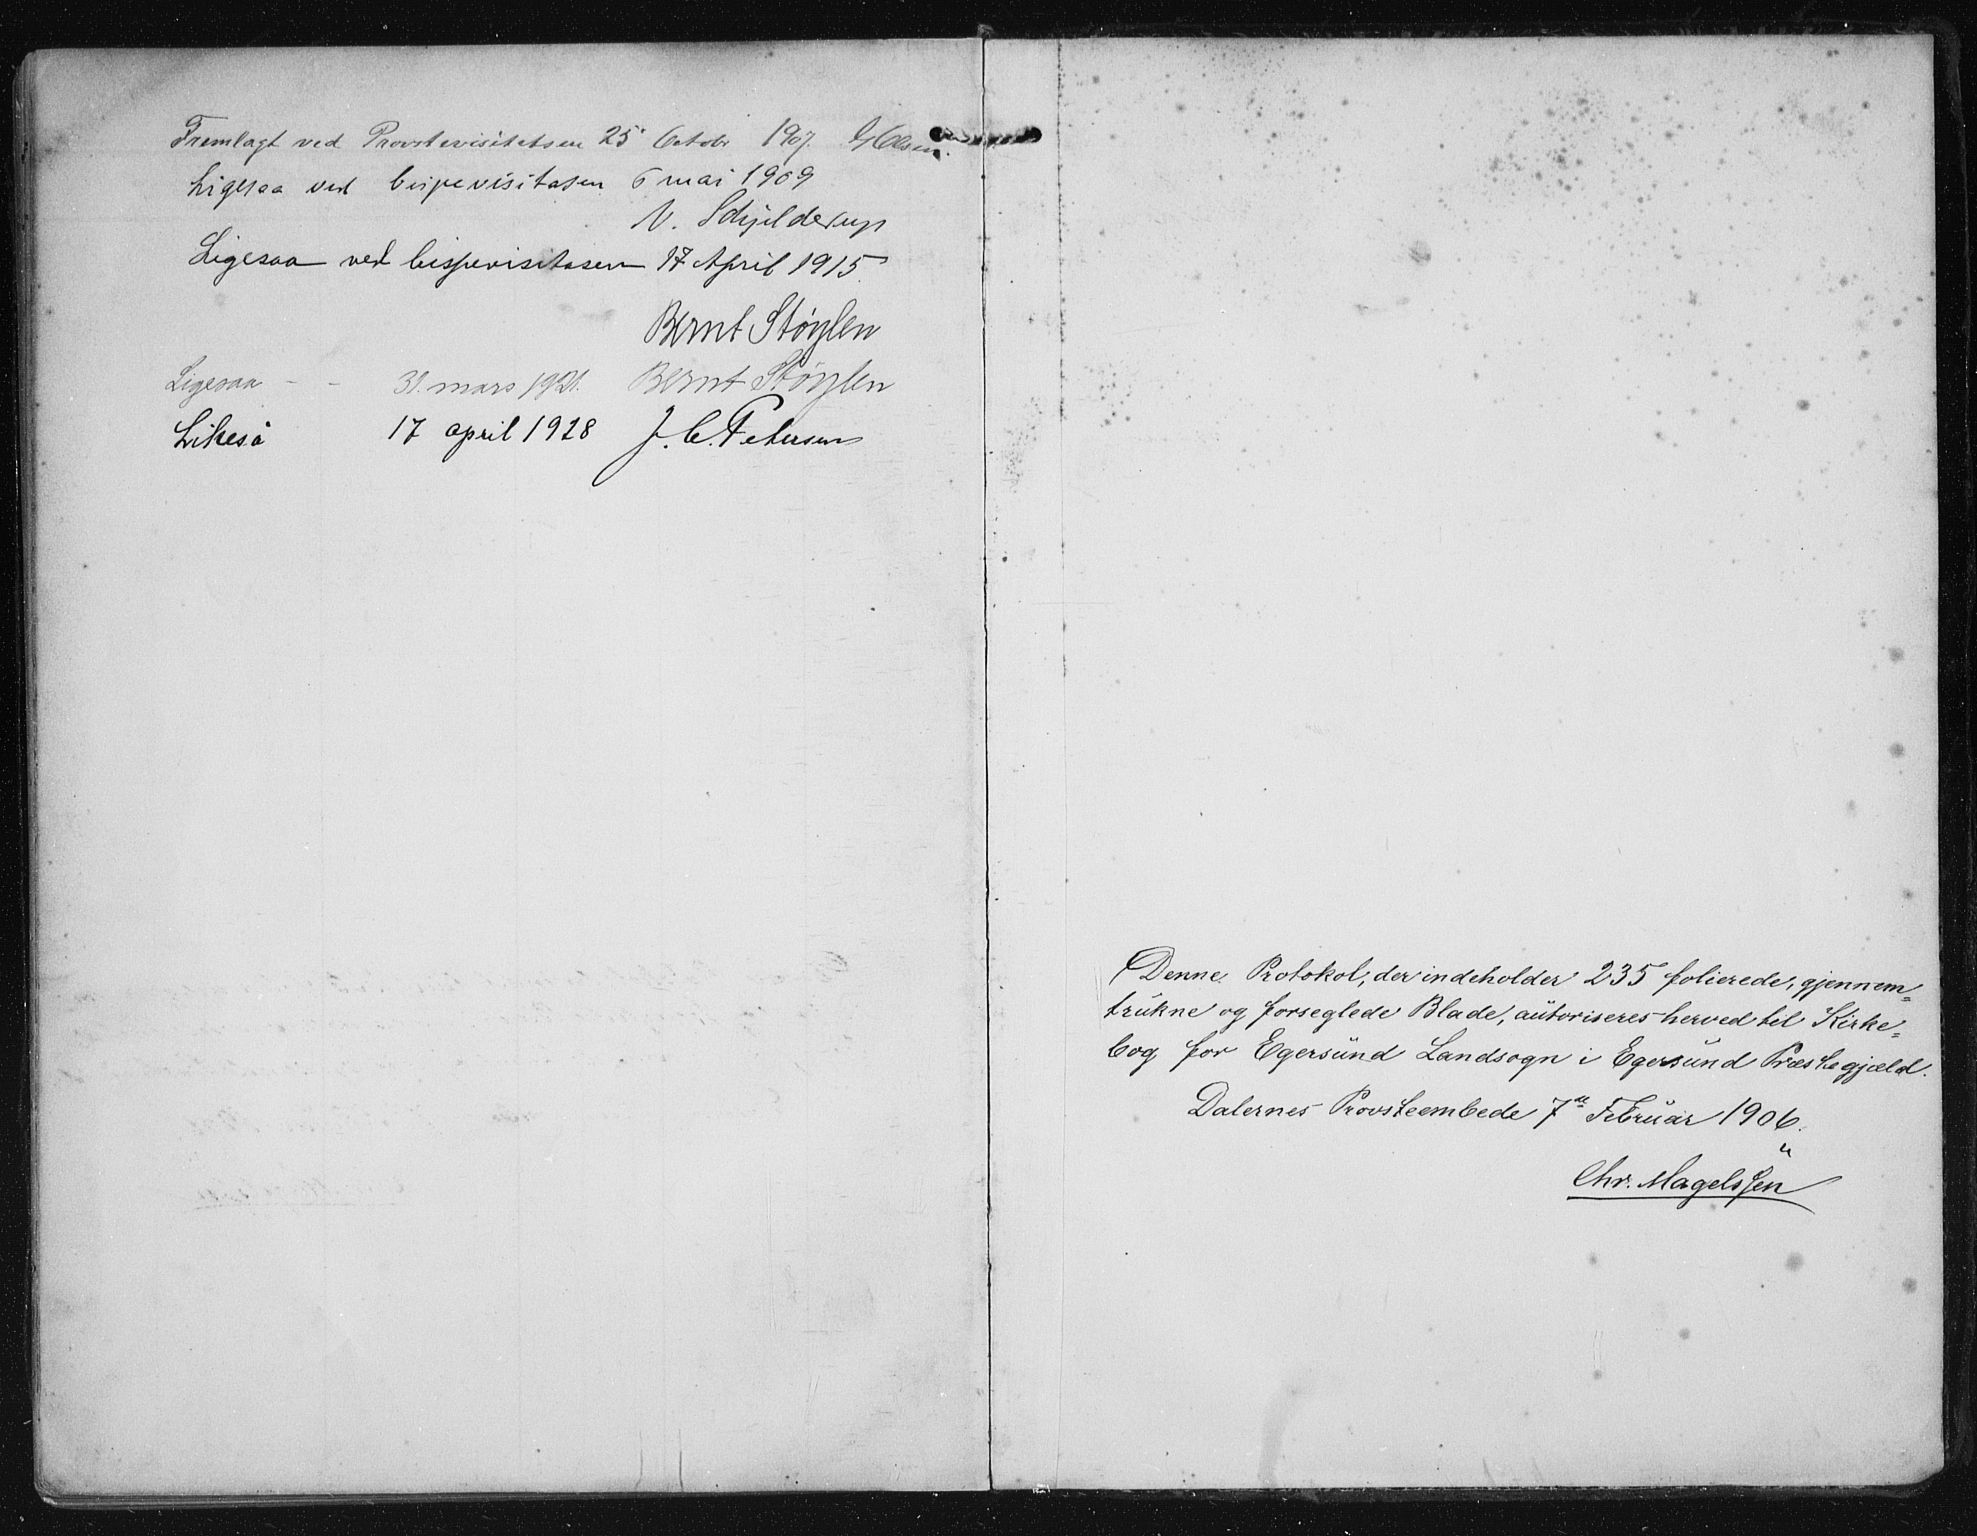 Fremlagt ved Provstevisitatsen 25 Octobr 1907. Olsen.
Ligesaa ved bispevisitasen 6 mai 1909
N. Schjelderup
Ligesaa ved bispevisitasen 17 April 1915.
Bernt Støylen
Ligesaa - - 31. mars 1921. Bernt Støylen
Likeså 17 april 1928 J. C. Petersen
Denne Protokol, der indeholder 235 folierede, gjennem=
trukne og forseglede Blade, autoriseres herved til Kirke=
bog for Egersund Landsogn i Egersund Præstegjæld.
Dalernes Provsteembede 7de Februar 1906.
Chr. Magelssen